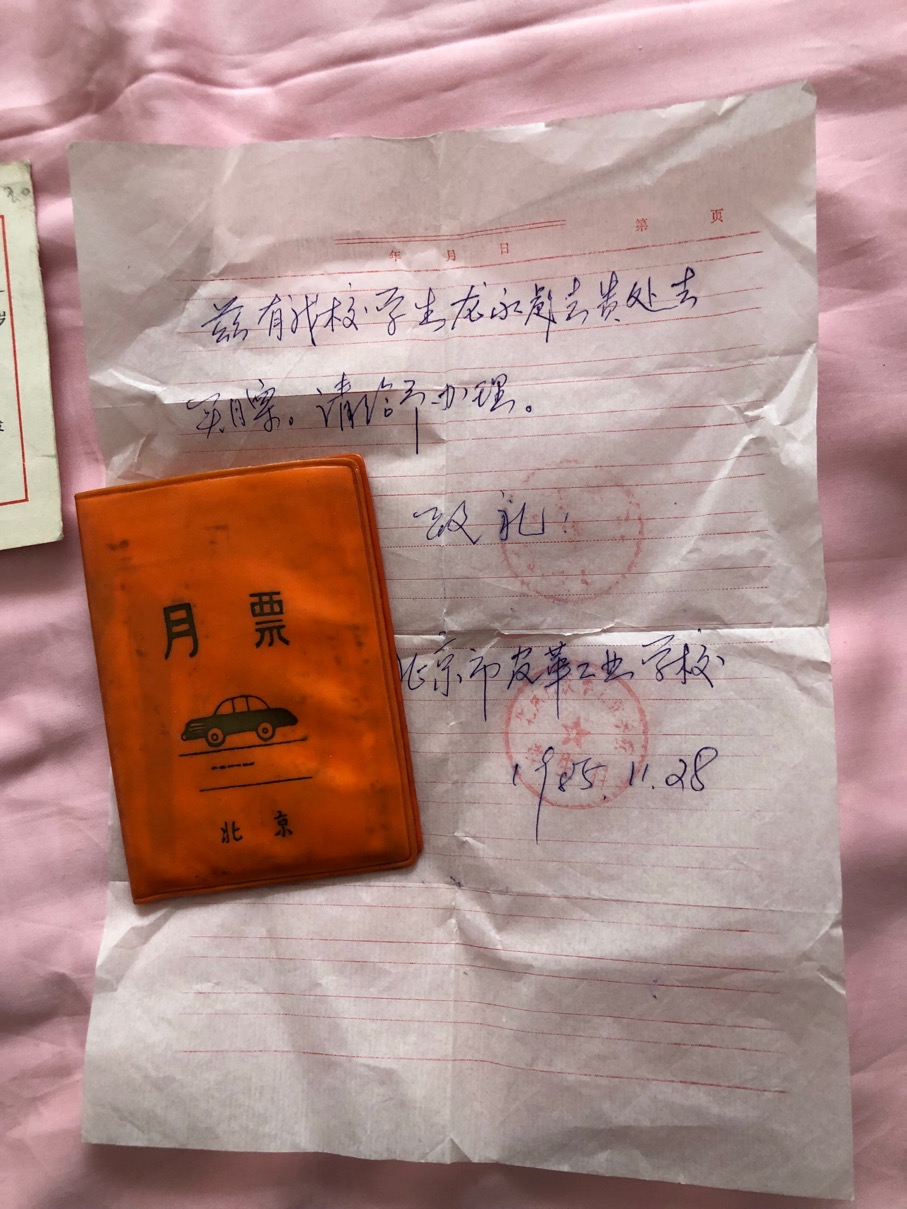 第 页
年 月 日
兹有我校学生龙永彪去贵处去
买月票。请给予办理。
致礼！
北京市皮革工业学校
1985.11.28
月票
北京